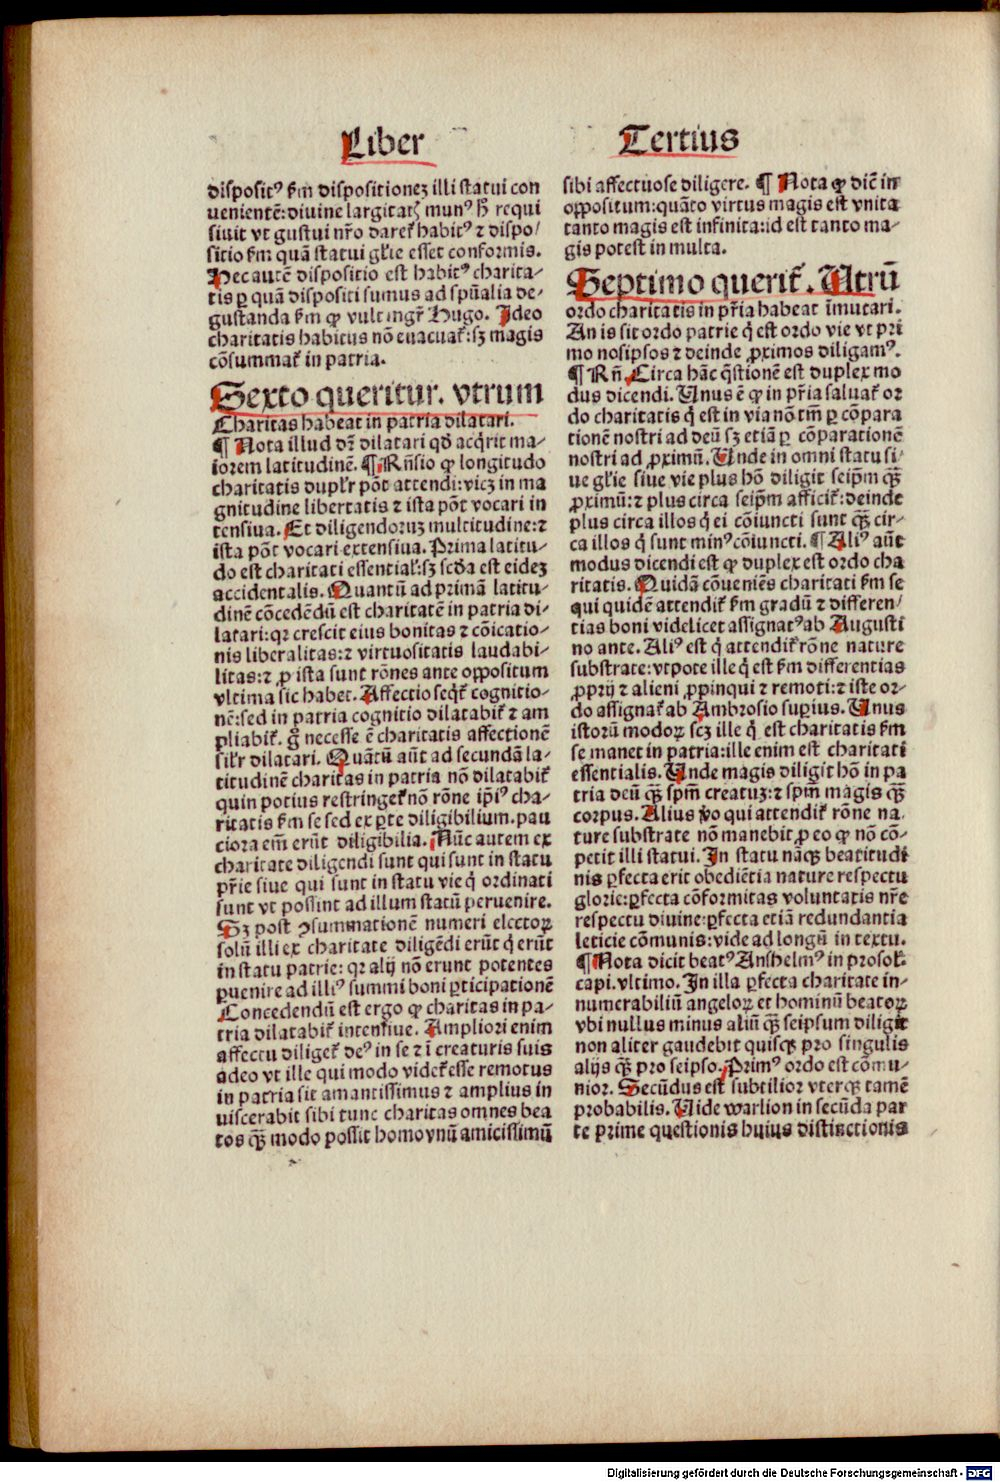 Liber
Tertius
disposit⁹ ẜm dispositionez illi statui con
uenientē: diuine largitatꝭ mun⁹ h̄ requi
siuit vt gustui nr̄o daret᷑ habit⁹ ⁊ dispo/
sitio ẜm quā statui gl̄ie esset conformis.
Hec autē dispositio est habit⁹ charita-
tis ꝑ quā dispositi sumus ad spūalia de-
gustanda ẜm ꝙ vult mgr̄ Hugo. Ideo
charitatis habitus nō euacuat᷑: sꝫ magis
cōsummat᷑ in patria.
Sexto queritur. vtrum
Charitas habeat in patria dilatari.
¶ Nota illud dr̄ dilatari qd̄ acq̇rit ma-
iorem latitudinē. ¶ Rn̄sio ꝙ longitudo
charitatis dupl̄r pōt attendi: vicꝫ in ma
gnitudine libertatis ⁊ ista pōt vocari in
tensiua. Et diligendoruꝫ multitudine: ⁊
ista pōt vocari extensiua. Prima latitu-
do est charitati essential̄: sꝫ scd̄a est eideꝫ
accidentalis. Quantū ad primā latitu-
dinē cōcedēdū est charitatē in patria di-
latari: qꝛ crescit eius bonitas ⁊ cōicatio-
nis liberalitas: ⁊ virtuositatis laudabi-
litas: ⁊ ꝓ ista sunt rōnes ante oppositum
vltima sic habet. Affectio seqt᷑ cognitio-
nē: sed in patria cognitio dilatabit᷑ ⁊ am
pliabit᷑. g̊ necesse ē charitatis affectionē
sil̄r dilatari. Quātū aūt ad secundā la-
titudinē charitas in patria nō dilatabit᷑
quin potius restringet᷑ nō rōne ip̄i⁹ cha-
ritatis ẜm se sed ex ꝑte diligibilium. pau
ciora em̄ erūt diligibilia. Nūc autem ex
charitate diligendi sunt qui sunt in statu
pr̄ie siue qui sunt in statu vie q̇ ordinati
sunt vt possint ad illum statū peruenire.
Sꝫ post ꝯsummationē numeri electoꝝ
solū illi ex charitate diligēdi erūt q̇ erūt
in statu patrie: qꝛ alij nō erunt potentes
ꝑuenire ad illi⁹ summi boni ꝑticipationē
Concedendū est ergo ꝙ charitas in pa-
tria dilatabit᷑ intensiue. Ampliori enim
affectu diliget᷑ de⁹ in se ⁊ ī creaturis suis
adeo vt ille qui modo videt᷑ esse remotus
in patria sit amantissimus ⁊ amplius in
uiscerabit sibi tunc charitas omnes bea
tos qꝫ̄ modo possit homo vnū amicissimū
sibi affectuose diligere. ¶ Nota ꝙ dic̄ in
oppositum: quāto virtus magis est vnita
tanto magis est infinita: id est tanto ma-
gis potest in multa.
Septimo querit᷑. Utrū
ordo charitatis in pr̄ia habeat īmutari.
An is sit ordo patrie q̇ est ordo vie vt pri
mo nosipsos ⁊ deinde ꝓximos diligam⁹.
¶ Rn̄. Circa hāc q̄stionē est duplex mo
dus dicendi. Unus ē ꝙ in pr̄ia saluat᷑ or
do charitatis q̇ est in via nō tm̄ ꝑ cōpara
tionē nostri ad deū sꝫ etiā ꝑ cōparationē
nostri ad ꝓximū. Unde in omni statu si-
ue gl̄ie siue vie plus hō diligit seip̄m qꝫ̄
ꝓximū: ⁊ plus circa seip̄m afficit᷑: deinde
plus circa illos q̇ ei cōiuncti sunt qꝫ̄ cir-
ca illos q̇ sunt min⁹ cōiuncti. ¶ Ali⁹ aūt
modus dicendi est ꝙ duplex est ordo cha
ritatis. Quidā cōueniēs charitati ẜm se
qui quidē attendit᷑ ẜm gradū ⁊ differen/
tias boni videlicet assignat⁹ ab Augusti
no ante. Ali⁹ est q̇ attendit᷑ rōne nature
substrate: vtpote ille q̇ est ẜm differentias
ꝓprij ⁊ alieni ꝓpinqui ⁊ remoti: ⁊ iste or-
do assignat᷑ ab Ambrosio supius. Unus
istorū modoꝝ scꝫ ille q̇ est charitatis ẜm
se manet in patria: ille enim est charitati
essentialis. Unde magis diligit hō in pa
tria deū qꝫ̄ sp̄m creatuꝫ: ⁊ sp̄m magis qꝫ̄
corpus. Alius v̄o qui attendit᷑ rōne na-
ture substrate nō manebit ꝓ eo ꝙ nō cō-
petit illi statui. In statu nāqꝫ beatitudi
nis ꝑfecta erit obediētia nature respectu
glorie: ꝑfecta cōformitas voluntatis nr̄e
respectu diuine: ꝑfecta etiā redundantia
leticie cōmunis: vide ad longū in textu.
¶ Nota dicit beat⁹ Anshelm⁹ in prosol.
capi. vltimo. In illa ꝑfecta charitate in-
numerabiliū angeloꝝ et hominū beatoꝝ
vbi nullus minus aliū qꝫ̄ seipsum diligit
non aliter gaudebit quisqꝫ pro singulis
alijs qꝫ̄ pro seipso. Prim⁹ ordo est cōmu-
nior. Secūdus est subtilior vterqꝫ tamē
probabilis. Uide warlion in secūda par
te prime questionis huius distinctionis
Digitalisierung gefördert durch die Deutsche Forschungsgemeinschaft - DFG